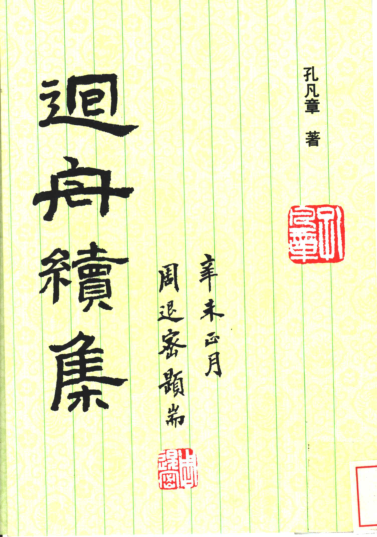 孔凡章 著
孔凡章
辛未正月
周退密題耑
周退密
迴舟續集